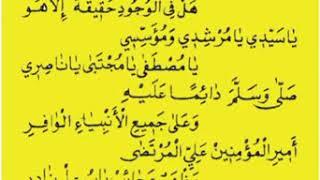 هَلْ فِي الْوُجُودِ حَقِيقَةٌ إِلَّا هُو
يَا سَيِّدِي يَا مُرْشِدِي وَمُؤَسِّسِي
يَا مُصْطَفَى يَا مُجْتَبَى يَا نَاصِرِي
صَلَّى وَسَلَّمَ دَائِمًا عَلَيْهِ
وَعَلَى جَمِيعِ الْأَنْبِيَاءِ الْوَافِرِ
أَمِيرِ الْمُؤْمِنِينَ عَلِيِّ الْمُرْتَضَى